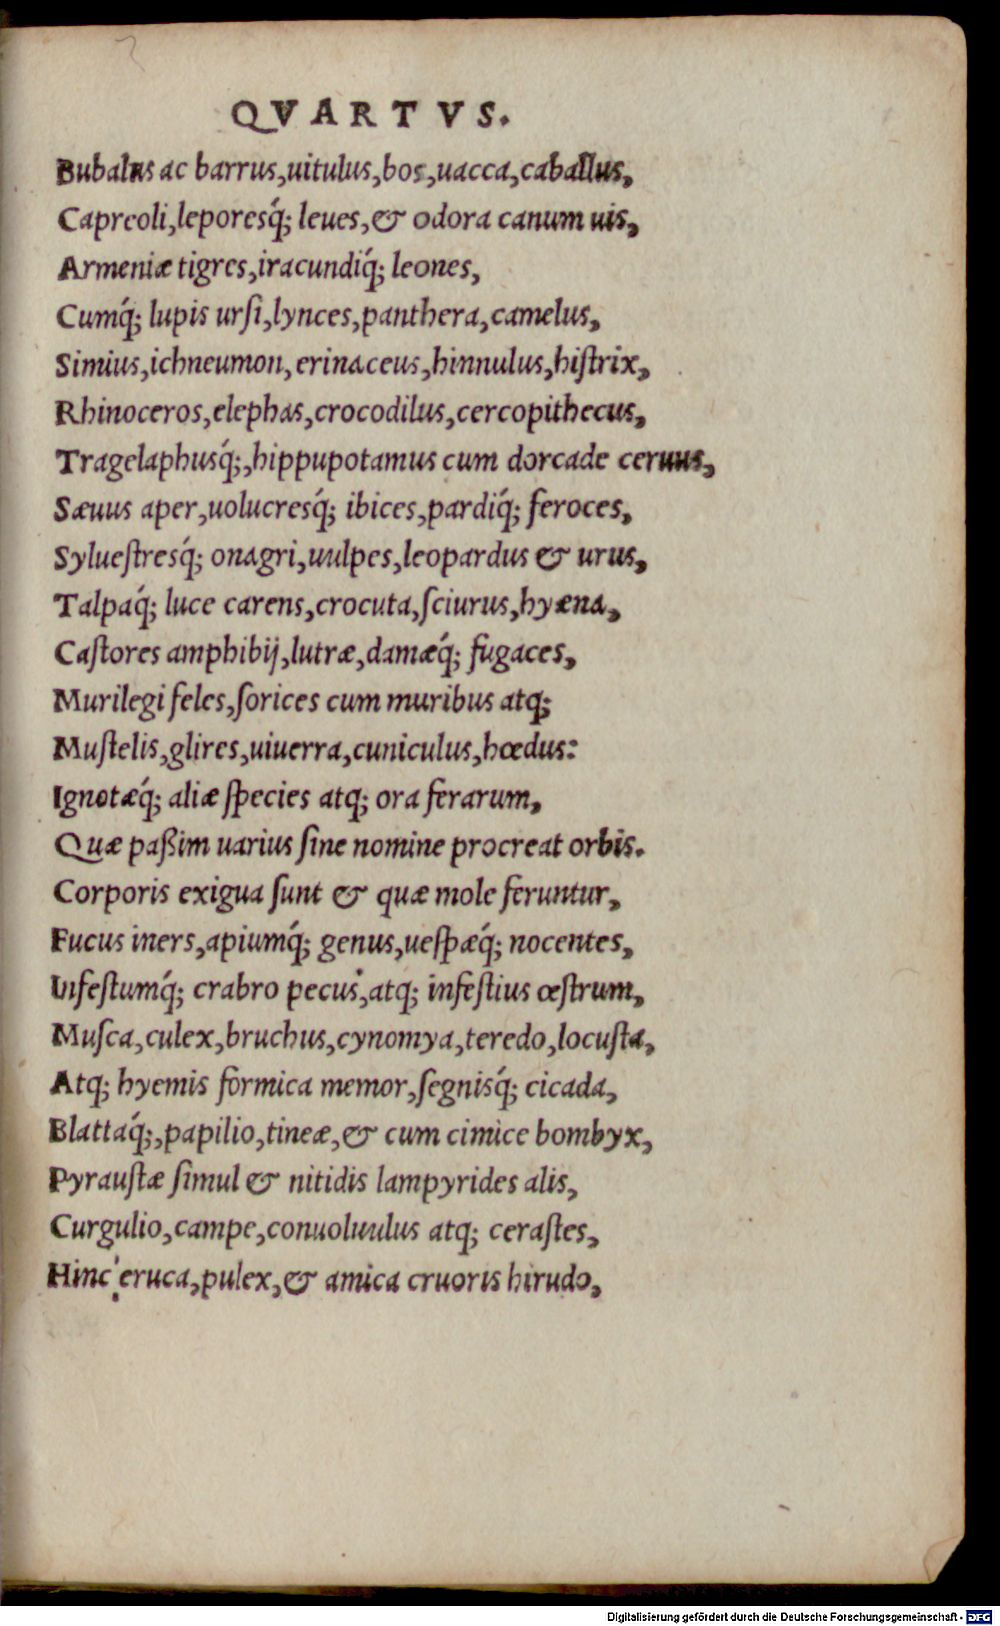 QVARTVS.
Bubalus ac barrus,uitulus,bos,uacca,caballus,
Capreoli,leporesq́; leues,& odora canum uis,
Armeniæ tigres,iracundiq́; leones,
Cumq́; lupis urſi,lynces,panthera,camelus,
Simius,ichneumon,erinaceus,hinnulus,hiſtrix,
Rhinoceros,elephas,crocodilus,cercopithecus,
Tragelaphusq́;,hippupotamus cum dorcade ceruus,
Sæuus aper,uolucresq́; ibices,pardiq́; feroces,
Sylueſtresq́; onagri,uulpes,leopardus & urus,
Talpaq́; luce carens,crocuta,ſciurus,hyæna,
Caſtores amphibij,lutræ,damæq́; fugaces,
Murilegi feles,ſorices cum muribus atq;
Muſtelis,glires,uiuerra,cuniculus,hœdus:
Ignotæq́; aliæ ſpecies atq; ora ferarum,
Quæ paßim uarius ſine nomine procreat orbis.
Corporis exigua ſunt & quæ mole feruntur,
Fucus iners,apiumq́; genus,ueſpæq́; nocentes,
Infeſtumq́; crabro pecus,atq; infeſtius œſtrum,
Muſca,culex,bruchus,cynomya,teredo,locuſta,
Atq; hyemis formica memor,ſegnisq́; cicada,
Blattaq́;,papilio,tineæ,& cum cimice bombyx,
Pyrauſtæ ſimul & nitidis lampyrides alis,
Curgulio,campe,conuoluulus atq; ceraſtes,
Hinc eruca,pulex,& amica cruoris hirudo,
Digitalisierung gefördert durch die Deutsche Forschungsgemeinschaft - DFG